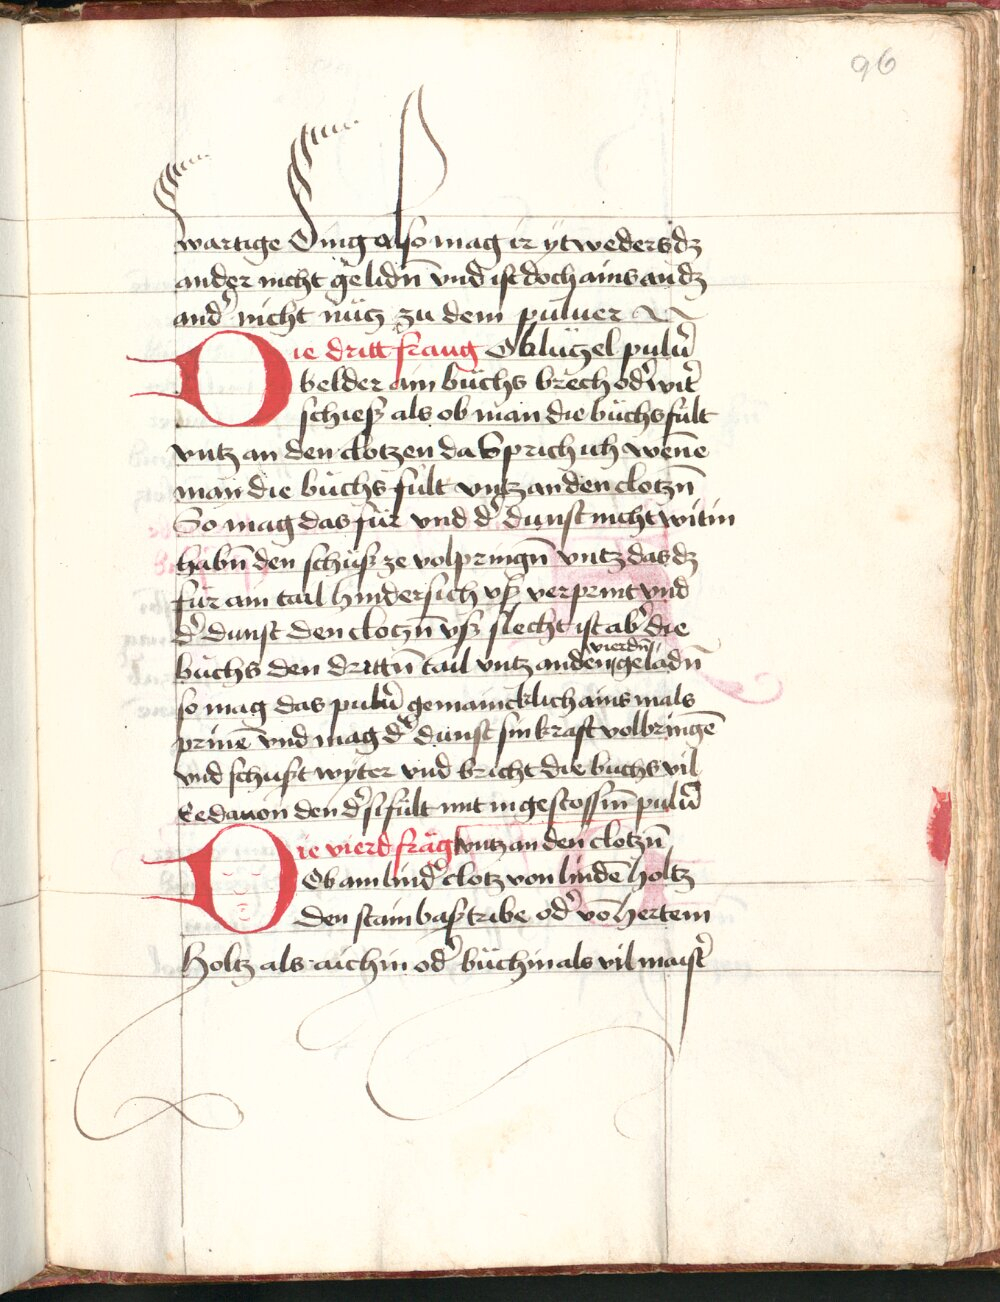 96
wartige Ding also mag ir ytweders dz
ander nicht gelidn̄ vnd ist doch ains an dz
and᷑ nicht nütz zu dem puluer
Die dritt fraug Ob lützel pulu᷑
belder ain büchs brech od᷑ wit᷑
schieß als ob man die büchs fült
vntz an den clotzen da Sprich ich wēne
man die büchs fült vntz an den clotzn̄
So mag das für vnd d᷑ dunst nicht witin
habn̄ den schuß ze volpringn̄ vntz das dz
für ain tail hindersich vß verprint vnd
d᷑ dunst den clotzn̄ vß slecht ist ab᷑ die
büchs den drittn̄ tail vntz an den vierdn̄ geladn̄
so mag das pulu᷑ gemaincklich ains mals
prinē vnd mag d᷑ dunst sin kraft volbringē
vnd schußt wyter vnd bricht die büchs vil
Ee dauon den d᷑ si fült mit ingestossīn pulu᷑
Die vierd frag vntz an den clotzn̄
Ob ain lind᷑ clotz von lindē holtz
den stain baß tribe od᷑ vō hertem
Holtz als aichin od᷑ büchin als vil maist᷑